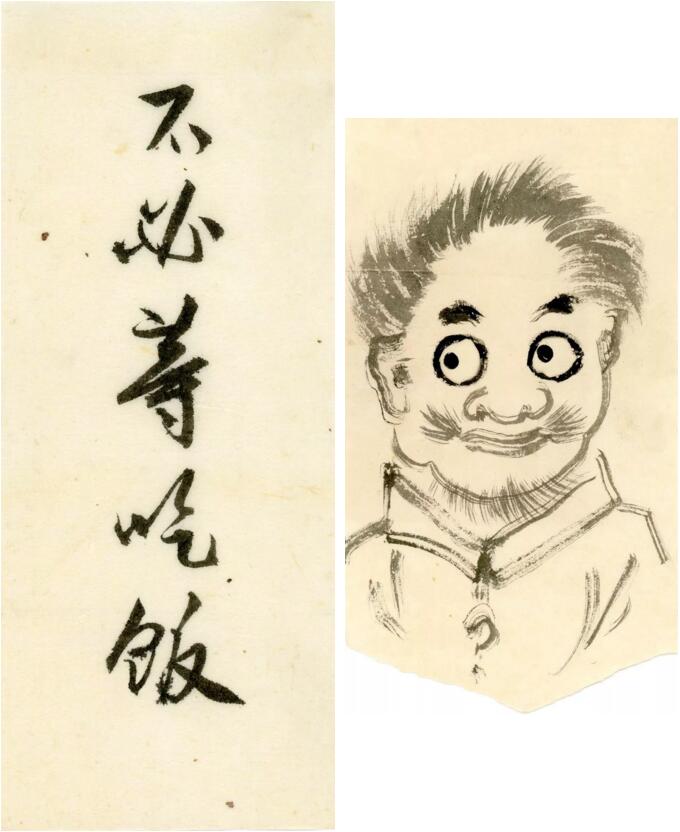 不必等吃飯